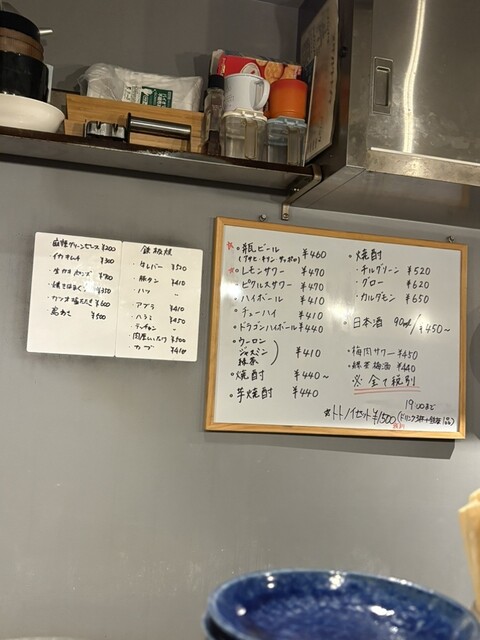 麻辣グリーンピース ¥200
イカキムチ ¥300
生カキポンズ ¥700
焼きはまぐり ¥350
¥600
¥500
鉄板焼
・牛レバー ¥520
・豚タン ¥410
・ハツ 〃
・アブミ ¥410
・ハラミ ¥450
・テッチャン 〃
¥500
・カブ ¥410
・瓶ビール ¥460
(アサヒ・キリン・サッポロ)
・レモンサワー ¥470
・ピクルスサワー ¥470
・ハイボール ¥410
・チューハイ ¥410
・ドラゴンハイボール ¥440
・ウーロン
ジャスミン ¥410
緑茶
・焼酎 ¥440～
・芋焼酎 ¥440
・焼酎
・チルグリーン ¥520
・グロー ¥620
・カルダモン ¥650
・日本酒 90ml/¥450～
・梅肉サワー ¥450
・緑茶梅酒 ¥440
※全て税別
19:00まで
※トトノイセット¥1500(ドリンク3杯+鉄板1品)